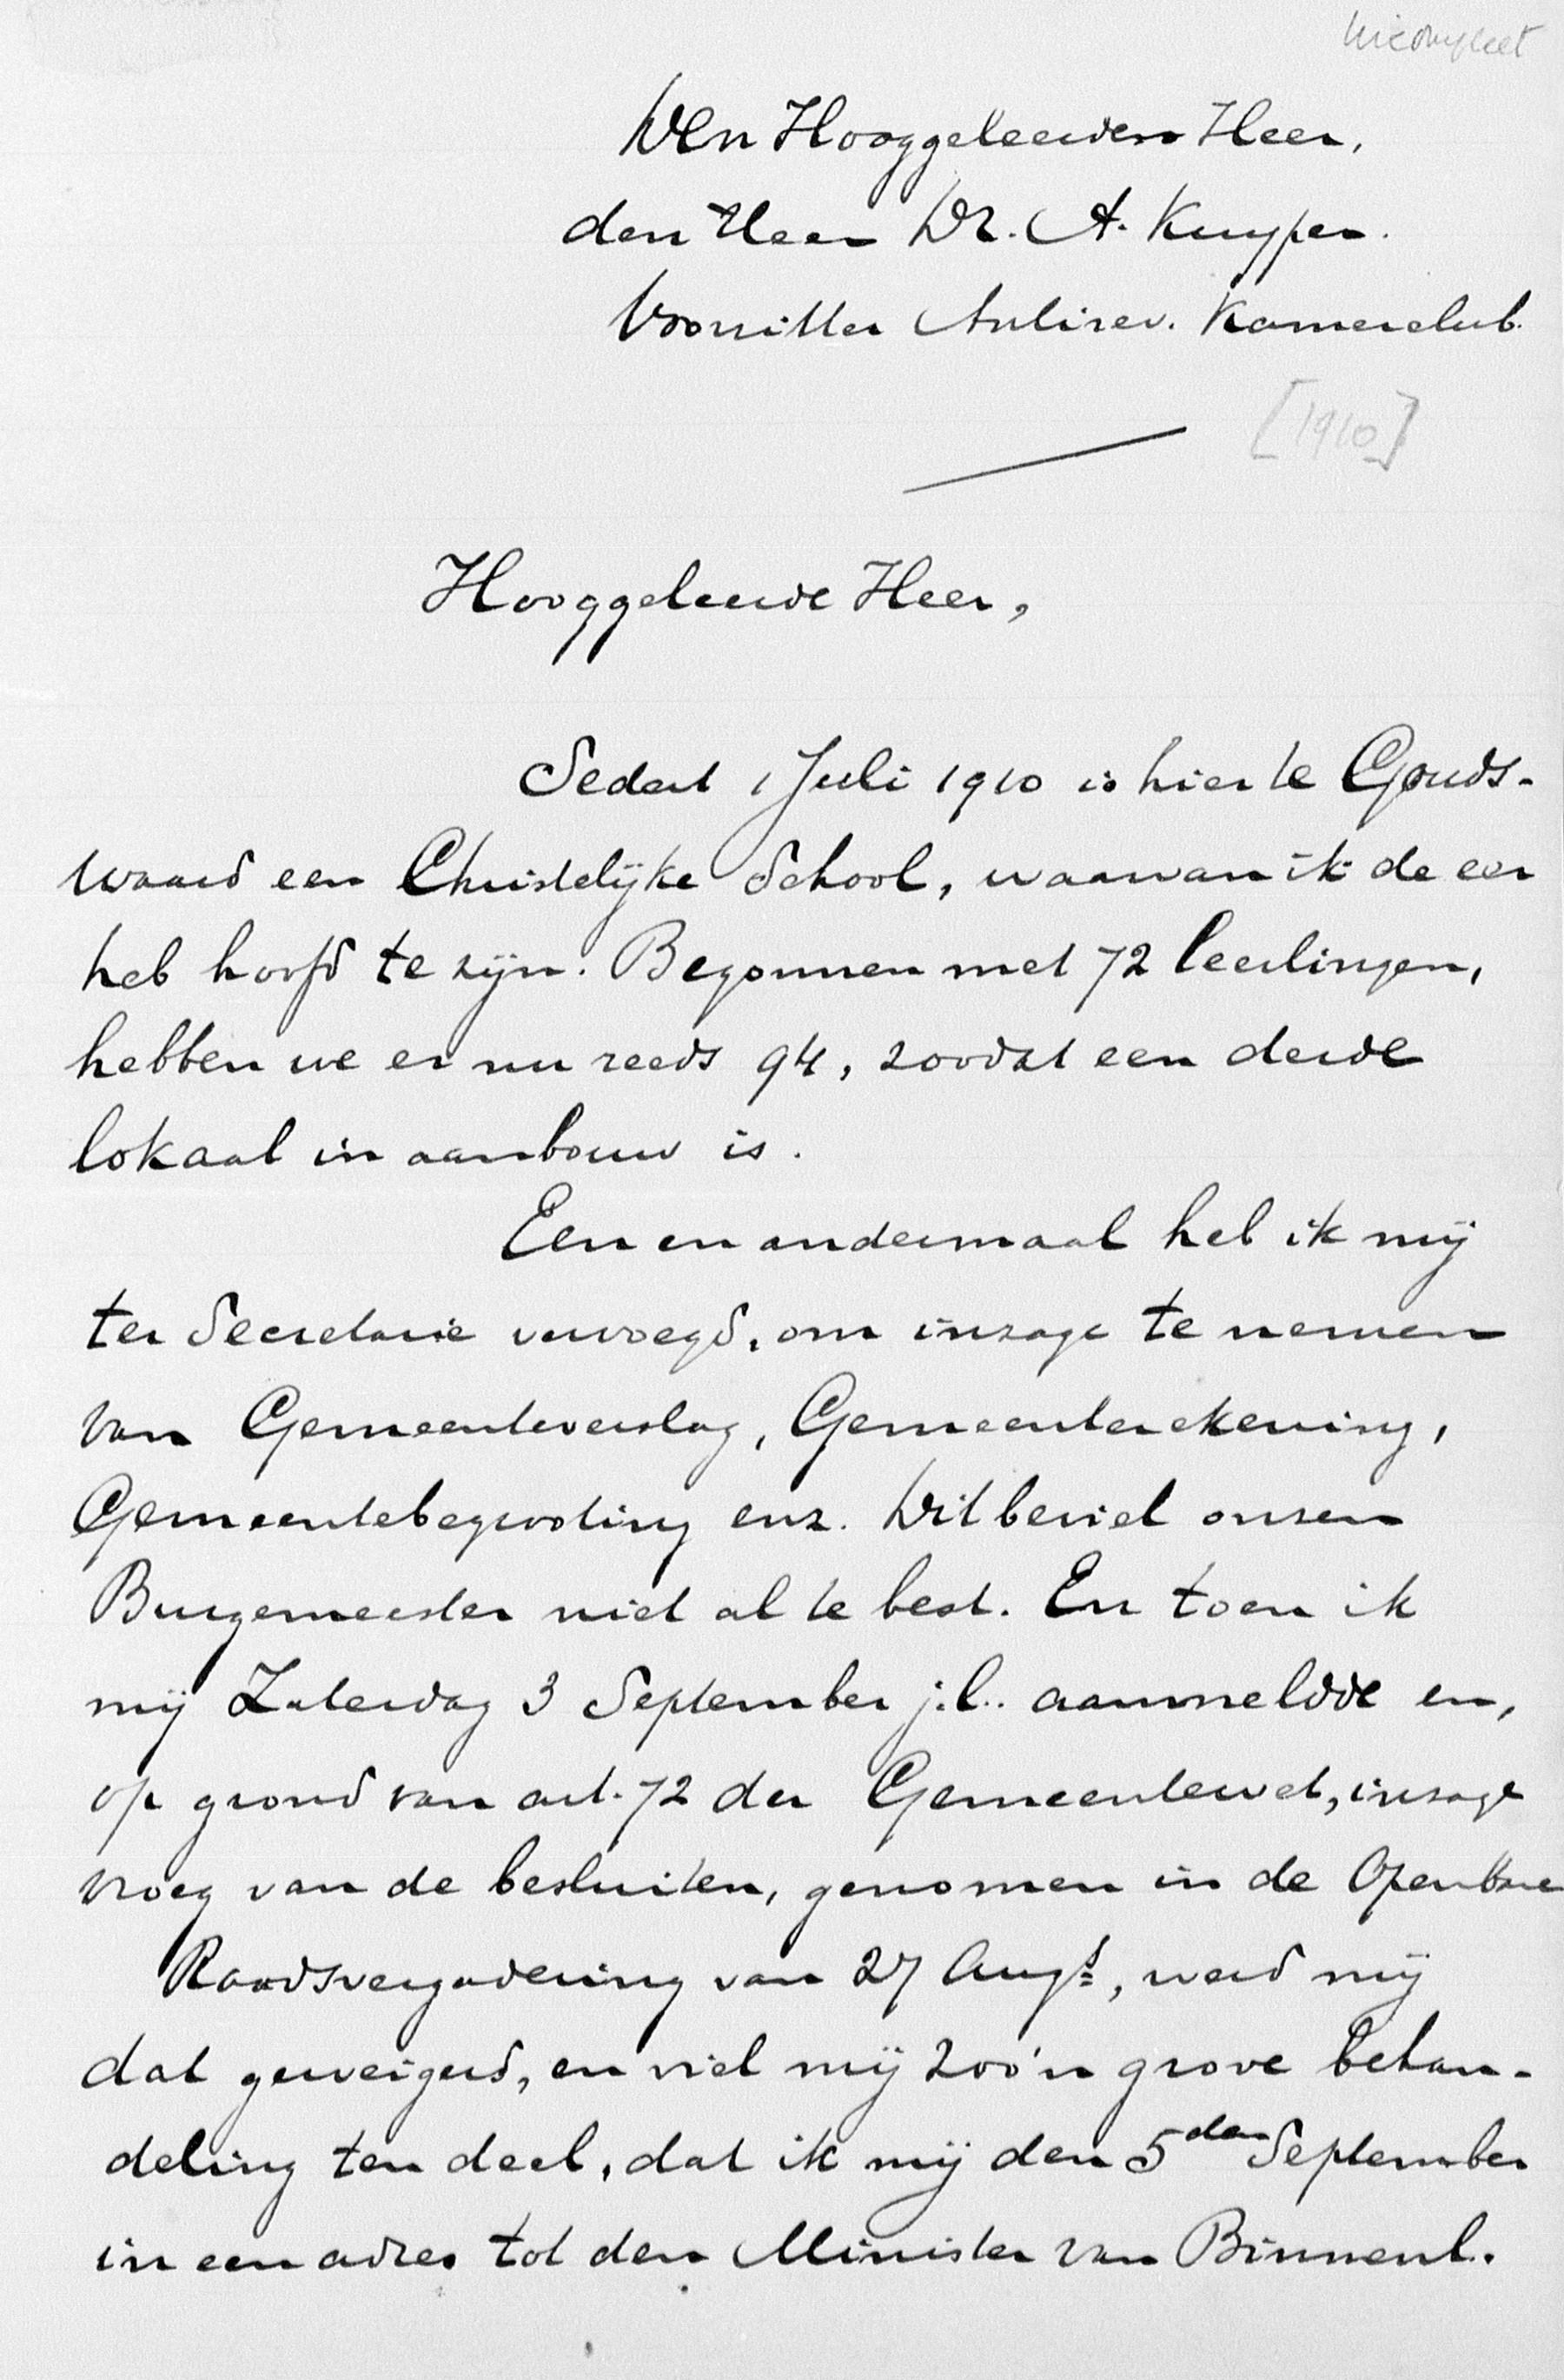 incompleet
Den Hooggeleerden Heer,
den Heer Dr. A. Kuyper.
Voorzitter Antirev. Kamerclub.
[1910]
Hooggeleerde Heer,
Sedert 1 Juli 1910 is hier te Gouds-
waard een Christelijke School, waarvan ik de eer
heb hoofd te zijn. Begonnen met 72 leerlingen,
hebben we er nu reeds 94, zoodat een derde
lokaal in aanbouw is.
Een en andermaal heb ik mij
ter Secretarie vervoegd, om inzage te nemen
van Gemeenteverslag, Gemeenterekening,
Gemeentebegrooting enz. Dit beviel onzen
Burgemeester niet al te best. En toen ik
mij Zaterdag 3 September j.l. aanmeldde en,
op grond van art. 72 der Gemeentewet, inzage
vroeg van de besluiten, genomen in de Openbare
Raadsvergadering van 27 Augt, werd mij
dat geweigerd, en viel mij zoo'n grove behan-
deling ten deel, dat ik mij den 5den September
in een adres tot den Minister van Binnenl.